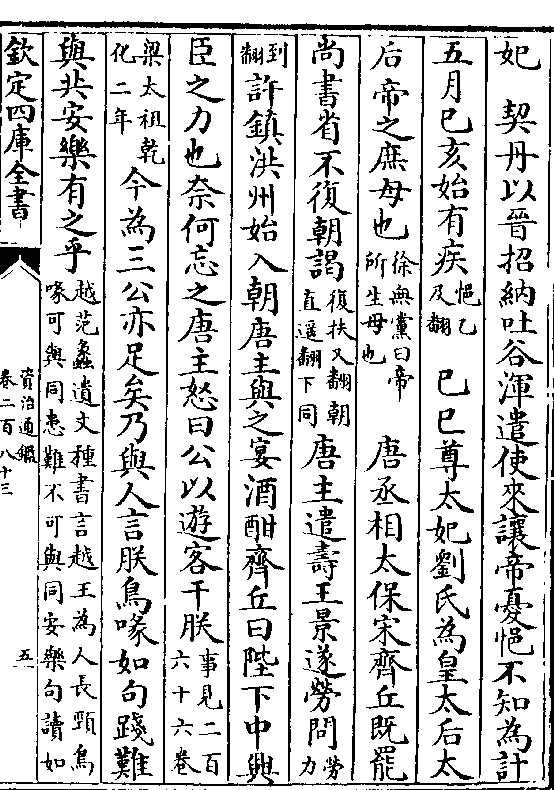 妃　契丹以晉招納吐谷渾遣使來讓帝憂悒不知為計
五月己亥始有疾悒乙及翻　己巳尊太妃劉氏為皇太后太
后帝之庶母也徐無黨曰帝所生母也　唐丞相太保宋齊丘既罷
尚書省不復朝謁復扶又翻朝直遥翻下同唐主遣壽王景遂勞問勞力
到翻許鎮洪州始入朝唐主與之宴酒酣齊丘曰陛下中興
臣之力也奈何忘之唐主怒曰公以遊客干朕事見二百六十六卷
梁太祖乾化二年今為三公亦足矣乃與人言朕鳥喙如句踐難
與共安樂有之乎越范蠡遺文種書言越王為人長頸鳥喙可與同患難不可與同安樂句讀如
欽定四庫全書
資治通鑑
卷二百八十三
五